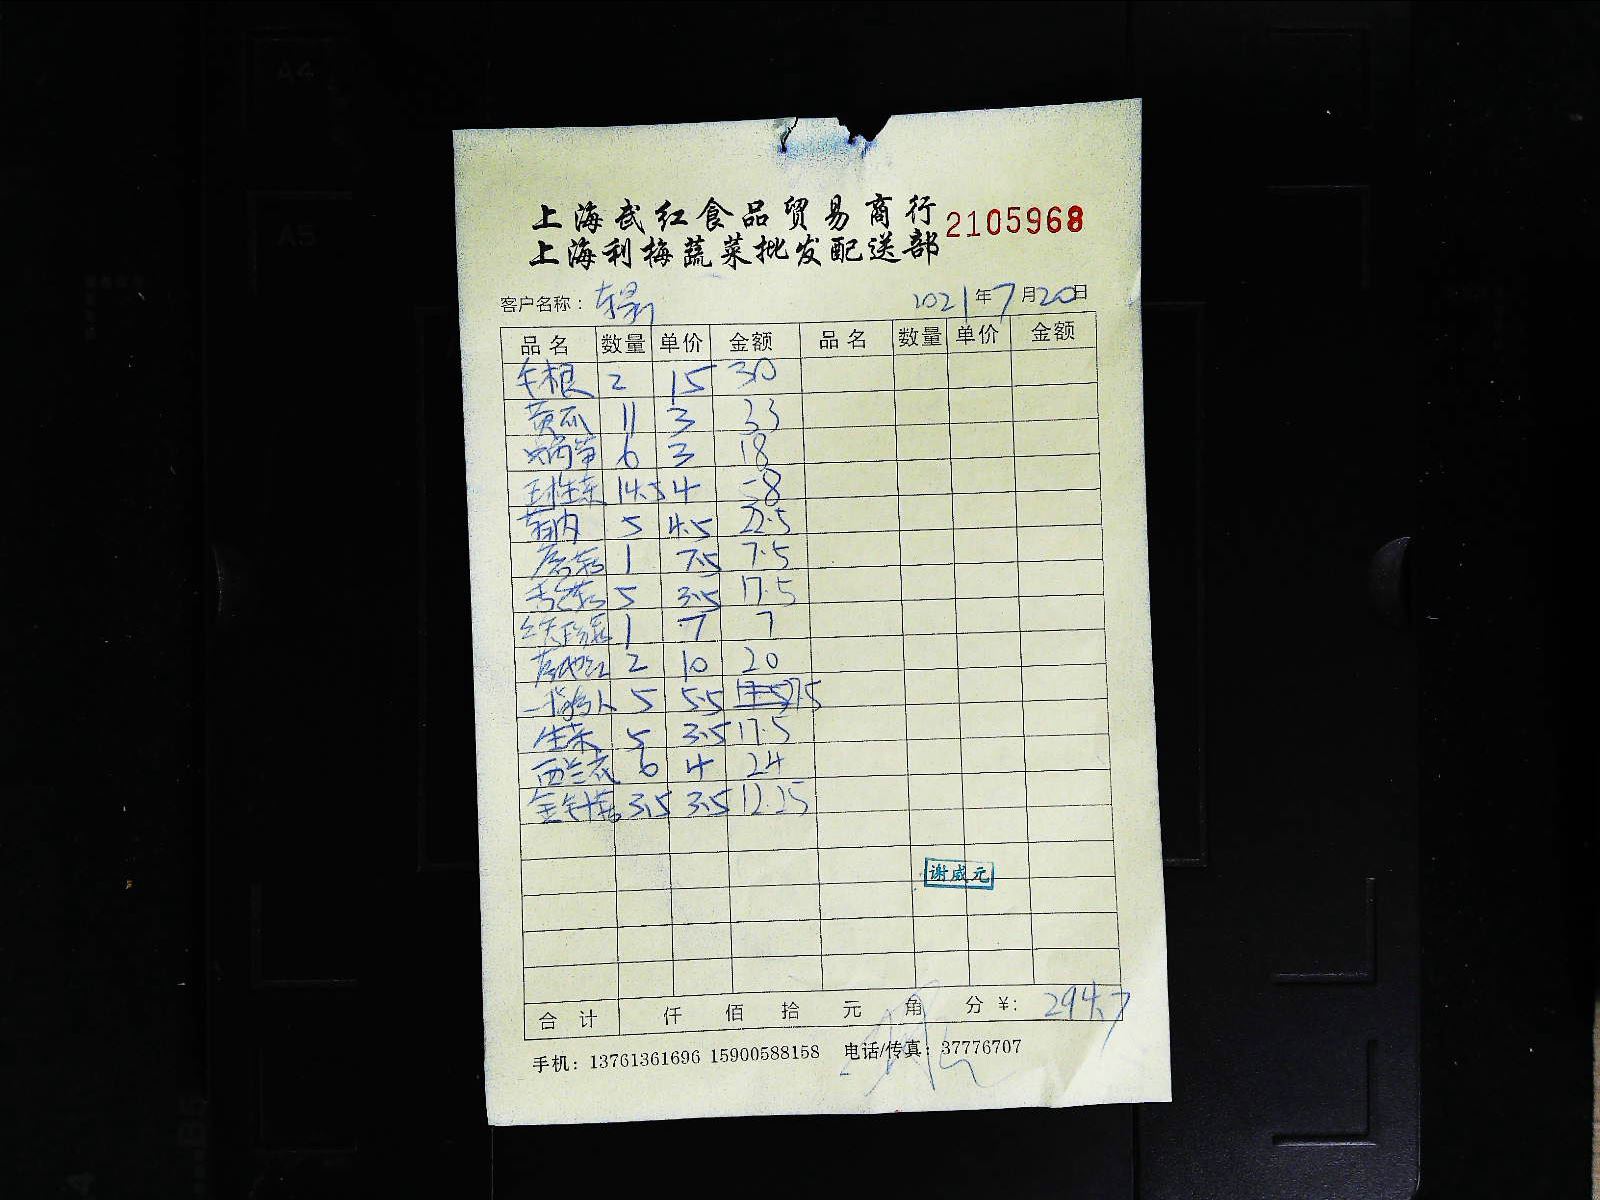 上海武红食品贸易商行
上海利梅蔬菜批发配送部
2105968
客户名称： 2021年7月20日
品名 数量 单价 金额 品名 数量 单价 金额
牛根 2 15 30
黄瓜 11 3 33
莴笋 6 3 18
14.5 4 58
5 4.5 22.5
1 7.5 7.5
5 3.5 17.5
1 7 7
2 10 20
5 5.5 27.5
生菜 5 3.5 17.5
西兰花 6 4 24
金针菇 3.5 3.5 12.25
谢威元
合计 仟 佰 拾 元 角 分 ¥: 294.7
手机：13761361696 15900588158 电话/传真：37776707